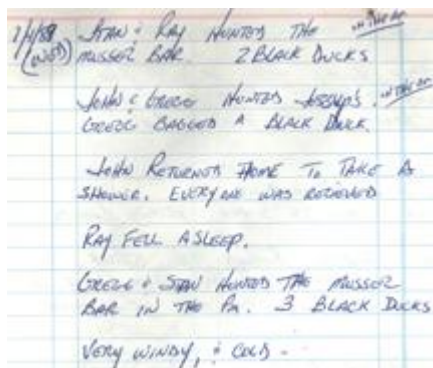 1/4/89 STAN & RAY HUNTED THE IN THE AM
(WED) MUSSEL BAR. 2 BLACK DUCKS
JOHN & GREGG HUNTED JESSUP'S. IN THE AM
GREGG BAGGED A BLACK DUCK.
JOHN RETURNED HOME TO TAKE A
SHOWER. EVERYONE WAS RELIEVED
RAY FELL ASLEEP.
GREGG & STAN HUNTED THE MUSSEL
BAR IN THE PM. 3 BLACK DUCKS
VERY WINDY, & COLD -